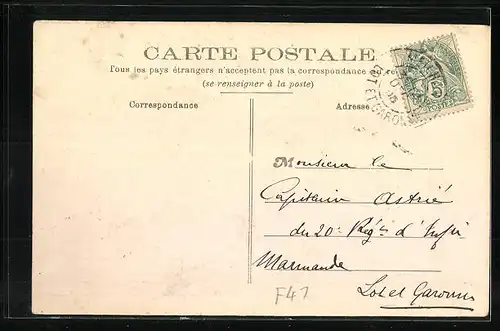 CARTE POSTALE
Tous les pays étrangers n'acceptent pas la correspondance au
(se renseigner à la poste)
Correspondance
Adresse
LOT ET GARONNE
5
Monsieur le
Capitaine Astrié
du 20e Régt d'Infie
Marmande
Lot et Garonne
F41